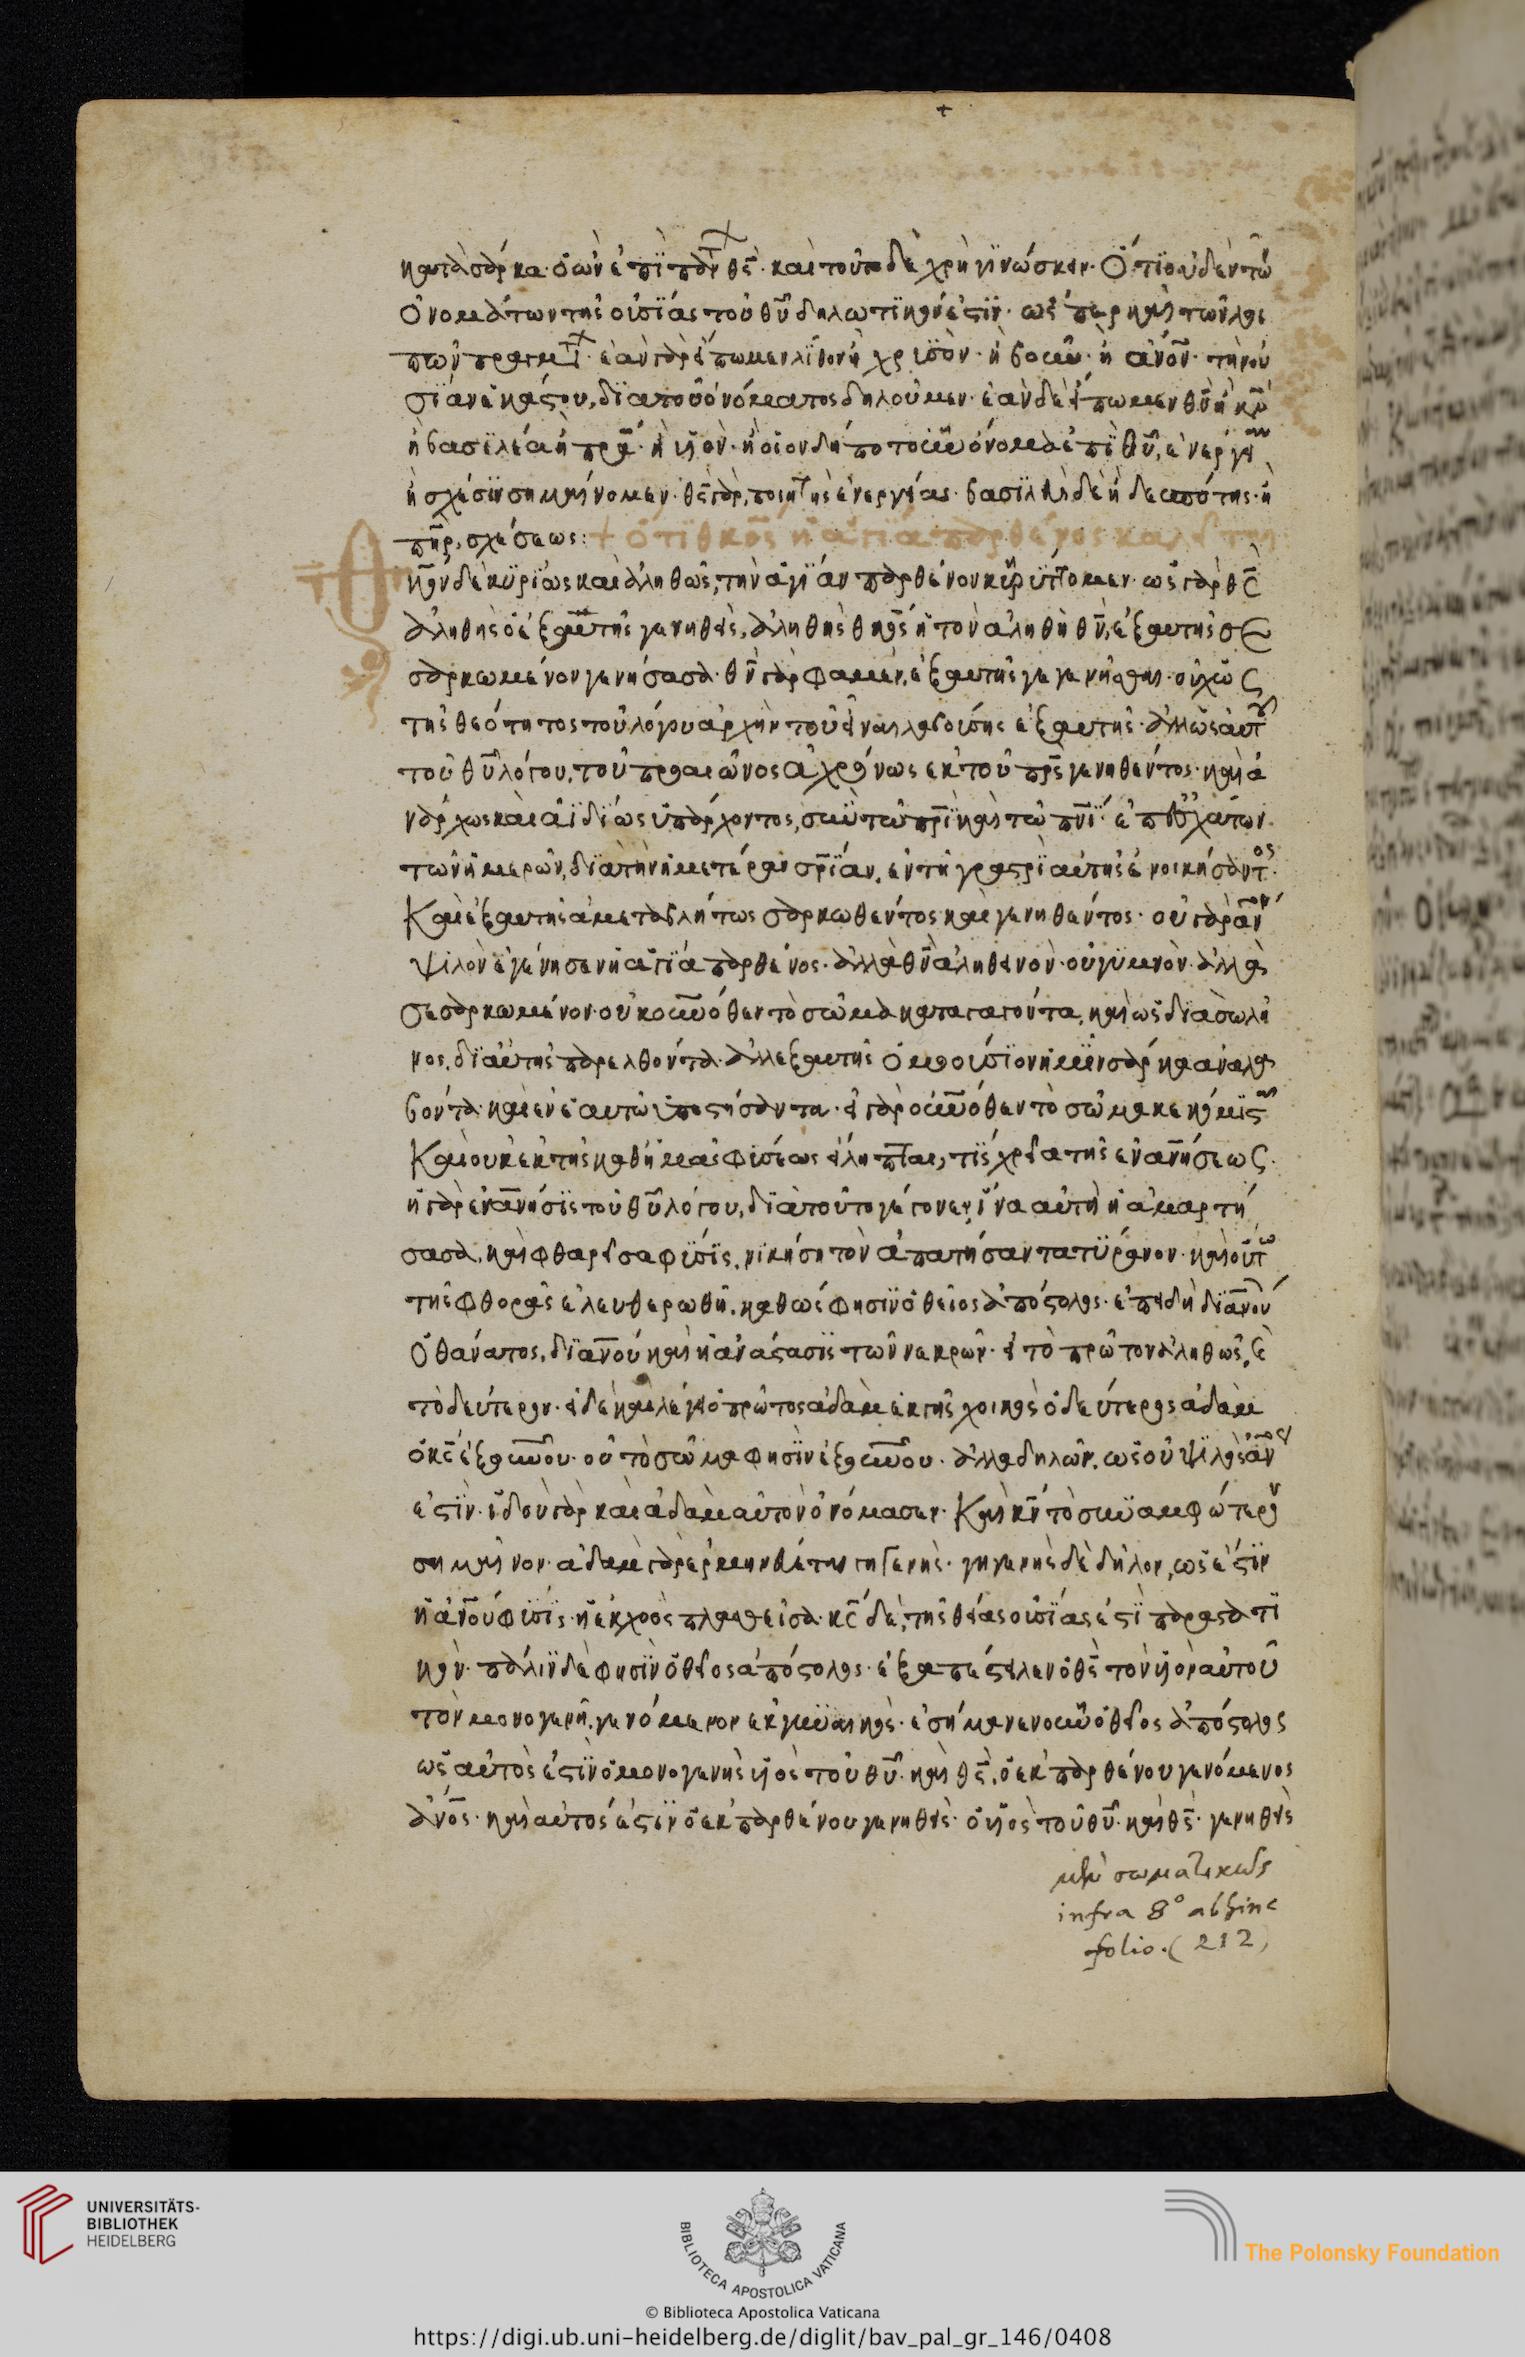 κατὰ σάρκα· ὅων ἐπὶ πάντ θς· καὶ τοῦτο δὲ χρὴ γινώσκειν· Ὅτι οὐδὲν τῶ
ὀνομάτων τῆς οὐσίας τοῦ θυ δηλωτικόν ἐστιν· ὡς περ καὶ τῶν λοι
πῶν πραγμτ· ἐὰν γὰρ εἴπωμεν λίθον ἢ χρυσὸν· ἢ βοῦν· ἢ ἀνον· τὴν οὐ
σίαν ἑκάστου, διὰ τοῦ ὀνόματος δηλοῦμεν· ἐὰν δὲ εἴπωμεν θν ἢ κν
ἢ βασιλέα ἢ πρα· ἢ υἱὸν· ἢ οἱονδήποτοῦν ὄνομα ἐπὶ θυ, ἐνέργειαν
ἢ σχέσιν σημαίνομεν· θς γὰρ, ποιητὴς ἐνεργείας· βασιλεὺς δὲ ἢ δεσπότης· ἢ
πηρ, σχέσεως:
+ ὅτι θκος ἡ ἁγία παρθένος καλεῖται
Θκον δὲ κυρίως καὶ ἀληθῶς, τὴν ἁγίαν παρθένον κηρύττομεν· ὡς γὰρ θς
ἀληθὴς ὁ ἐξ αὐτῆς γενηθεὶς, ἀληθὴς θκος ἡ τὸν ἀληθῆ θν, ἐξ αὐτῆς σε
σαρκωμένον γενήσασα· θν γὰρ φαμεν, ἐξ αὐτῆς γεγενῆσθαι· οὐχ ὡς
τῆς θεότητος τοῦ λόγου ἀρχὴν τοῦ εἶναι λαβούσης ἐξ αὐτῆς· ἀλλ' ὡς αὐτοῦ
τοῦ θυ λόγου, τοῦ προαιῶνος ἀχρόνως ἐκ τοῦ πρς γενηθέντος· καὶ ἀ
νάρχως καὶ ἀϊδίως ὑπάρχοντος, σὺν τῶ πρι καὶ τῶ πνι· ἐπ' ἐσχάτων
τῶν ἡμερῶν, διὰ τὴν ἡμετέραν σριαν, ἐν τῆ γαστρὶ αὐτῆς ἐνοικήσαντος·
Καὶ ἐξ αὐτῆς ἀμεταβλήτως σαρκωθέντος καὶ γενηθέντος· οὐ γὰρ ἀνον
ψιλὸν ἐγέννησεν ἡ ἁγία παρθένος· ἀλλὰ θν ἀληθινὸν· οὐ γυμνὸν· ἀλλὰ
σεσαρκωμένον· οὐκ οὐνόθεν τὸ σῶμα καταγαγόντα, καὶ ὡς διὰ σωλῆ
νος, δι' αὐτῆς παρελθόντα· ἀλλ' ἐξ αὐτῆς ὁμοούσιον ἡμῖν σάρκα ἀναλα
βόντα· καὶ ἐν ἑαυτῶ ὑποστήσαντα· εἰ γὰρ οὐνόθεν τὸ σῶμα κεκόμισται
Καὶ οὐκ ἐκ τῆς καθ' ἡμᾶς φύσεως εἴληπται, τίς χρεία τῆς ἐνανήσεως·
ἡ γὰρ ἐνανησις τοῦ θυ λόγου, διὰ τοῦτο γέγονεν, ἵνα αὐτὴ ἡ ἁμαρτή
σασα, καὶ φθαρεῖσα φύσις, νικήση τὸν ἀπατήσαντα τύραννον· καὶ οὕτω
τῆς φθορᾶς ἐλευθερωθῆ, καθώς φησιν ὁ θεῖος ἀπόστολος· ἐπειδὴ δι' ἀνου
ὁ θάνατος, δι' ἀνου καὶ ἡ ἀνάστασις τῶν νεκρῶν· εἰ τὸ πρῶτον ἀληθῶς, καὶ
τὸ δεύτερον· εἰ δὲ καὶ λέγει ὁ πρῶτος ἀδὰμ ἐκ γῆς χοικὸς ὁ δεύτερος ἀδὰμ
ὁ κς ἐξ οὐνου· οὐ τὸ σῶμα φησὶν ἐξ οὐνου· ἀλλὰ δηλῶν, ὡς οὐ ψιλὸς ἀνος
ἐστὶν· ἰδοὺ γὰρ καὶ ἀδὰμ αὐτὸν ὀνόμασεν· Καὶ κν τὸ συναμφότερον
σημαίνον· ἀδὰμ γὰρ ἑρμηνεύεται γηγενής· γηγενὴς δὲ δῆλον, ὡς ἐστὶν
ἡ ἀνου φύσις· ἡ ἐκ χοὸς πλασθεῖσα· κς δὲ, τῆς θείας οὐσίας ἐστὶ παραστατι
κόν· πάλιν δὲ φησὶν ὁ θεῖος ἀπόστολος· ἐξαπέστειλεν ὁ θς τὸν υἱὸν αὐτοῦ
τὸν μονογενῆ, γενόμενον ἐκ γυναικὸς· ἐσήμανεν οὖν ὁ θεῖος ἀπόστολος
ὡς αὐτὸς ἐστὶν ὁ μονογενὴς υἱὸς τοῦ θυ· καὶ θς, ὁ ἐκ παρθένου γενόμενος
ἀνος· καὶ αὐτός ἐστιν ὁ ἐκ παρθένου γενηθεὶς· ὁ υἱὸς τοῦ θυ· καὶ θς· γενηθεὶς
μὲν σωματικῶς
infra 8° abhinc
folio. (212)
UNIVERSITÄTS-
BIBLIOTHEK
HEIDELBERG
BIBLIOTECA APOSTOLICA VATICANA
© Biblioteca Apostolica Vaticana
The Polonsky Foundation
https://digi.ub.uni-heidelberg.de/diglit/bav_pal_gr_146/0408